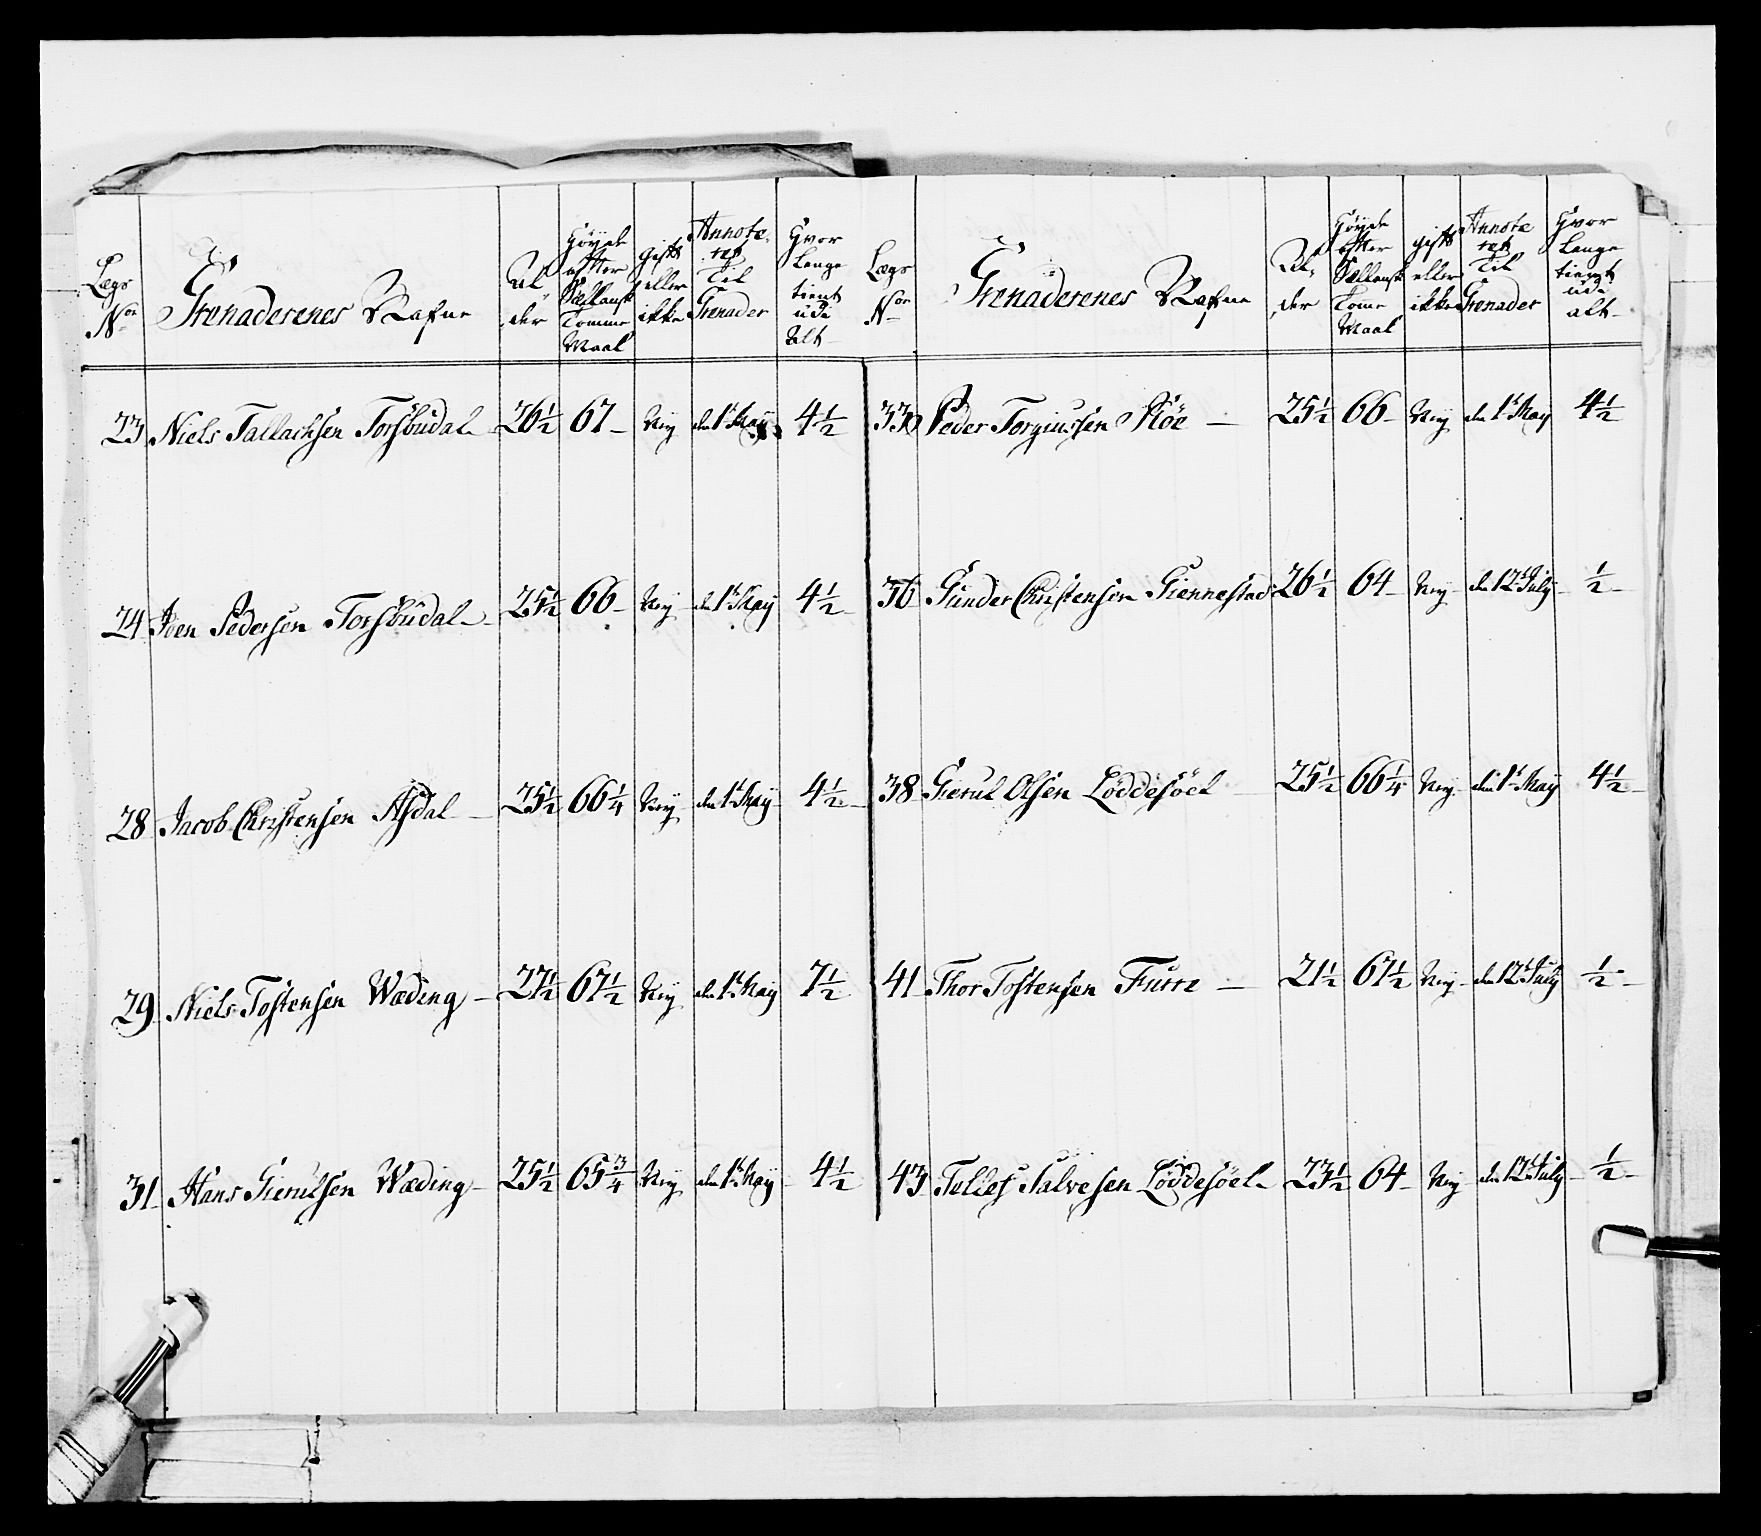 Lægs Nor | Grenaderenes Nafne | Al- der | Høyde efter Sællansk Tomme Maal | gift eller ikke | Annote- ret Til Grenader | Hvor Lenge tient udi Alt
23 Niels Tallachsen Torsbudal 26½ 67 Ney den 1t May 4½
24 Joen Pedersen Torsbudal 25½ 66 Ney den 1t May 4½
28 Jacob Christensen Asdal 25½ 66¼ Ney den 1t May 4½
29 Niels Tostensen Wæding 27½ 67½ Ney den 1t May 7½
31 Hans Gierulsen Wæding 25½ 65¾ Ney den 1t May 4½
Lægs Nor | Grenaderenes Nafne | Al- der | Høyde efter Sællansk Tome Maal | gift eller ikke | Annote- ret Til Grenader | Hvor Lenge tient udi alt
33 Peder Torgiussen Støe 25½ 66 Ney den 1t May 4½
36 Gunder Christensen Giennestad 26½ 64 Ney den 12t July ½
38 Gierul Olsen Løddesöel 25½ 66¼ Ney den 1t May 4½
41 Thor Tostensen Furre 21½ 67½ Ney den 12t July ½
43 Tellef Salvesen Løddesöel 23½ 64 Ney den 12t July ½